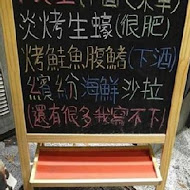 炎烤生蠔(很肥)
烤鮭魚腹鰭(下酒)
繽紛海鮮沙拉
還有很多我寫不下